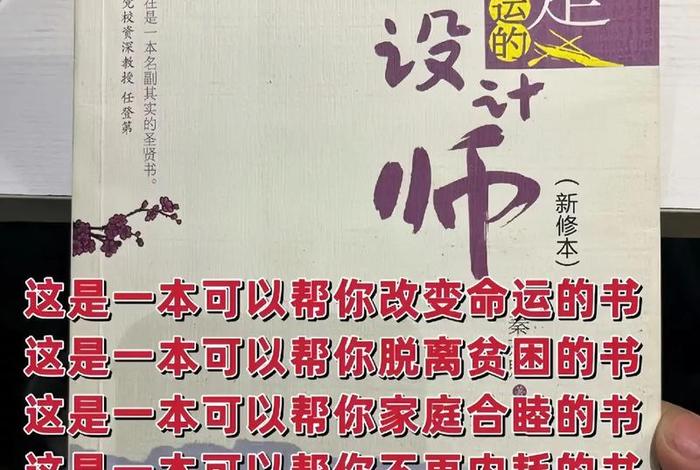 党校资深教授 任登第
在是一本名副其实的圣贤书。
运的
设计
师
(新修本)
秦
这是一本可以帮你改变命运的书
这是一本可以帮你脱离贫困的书
这是一本可以帮你家庭合睦的书
这是一本可以帮你不再内耗的书